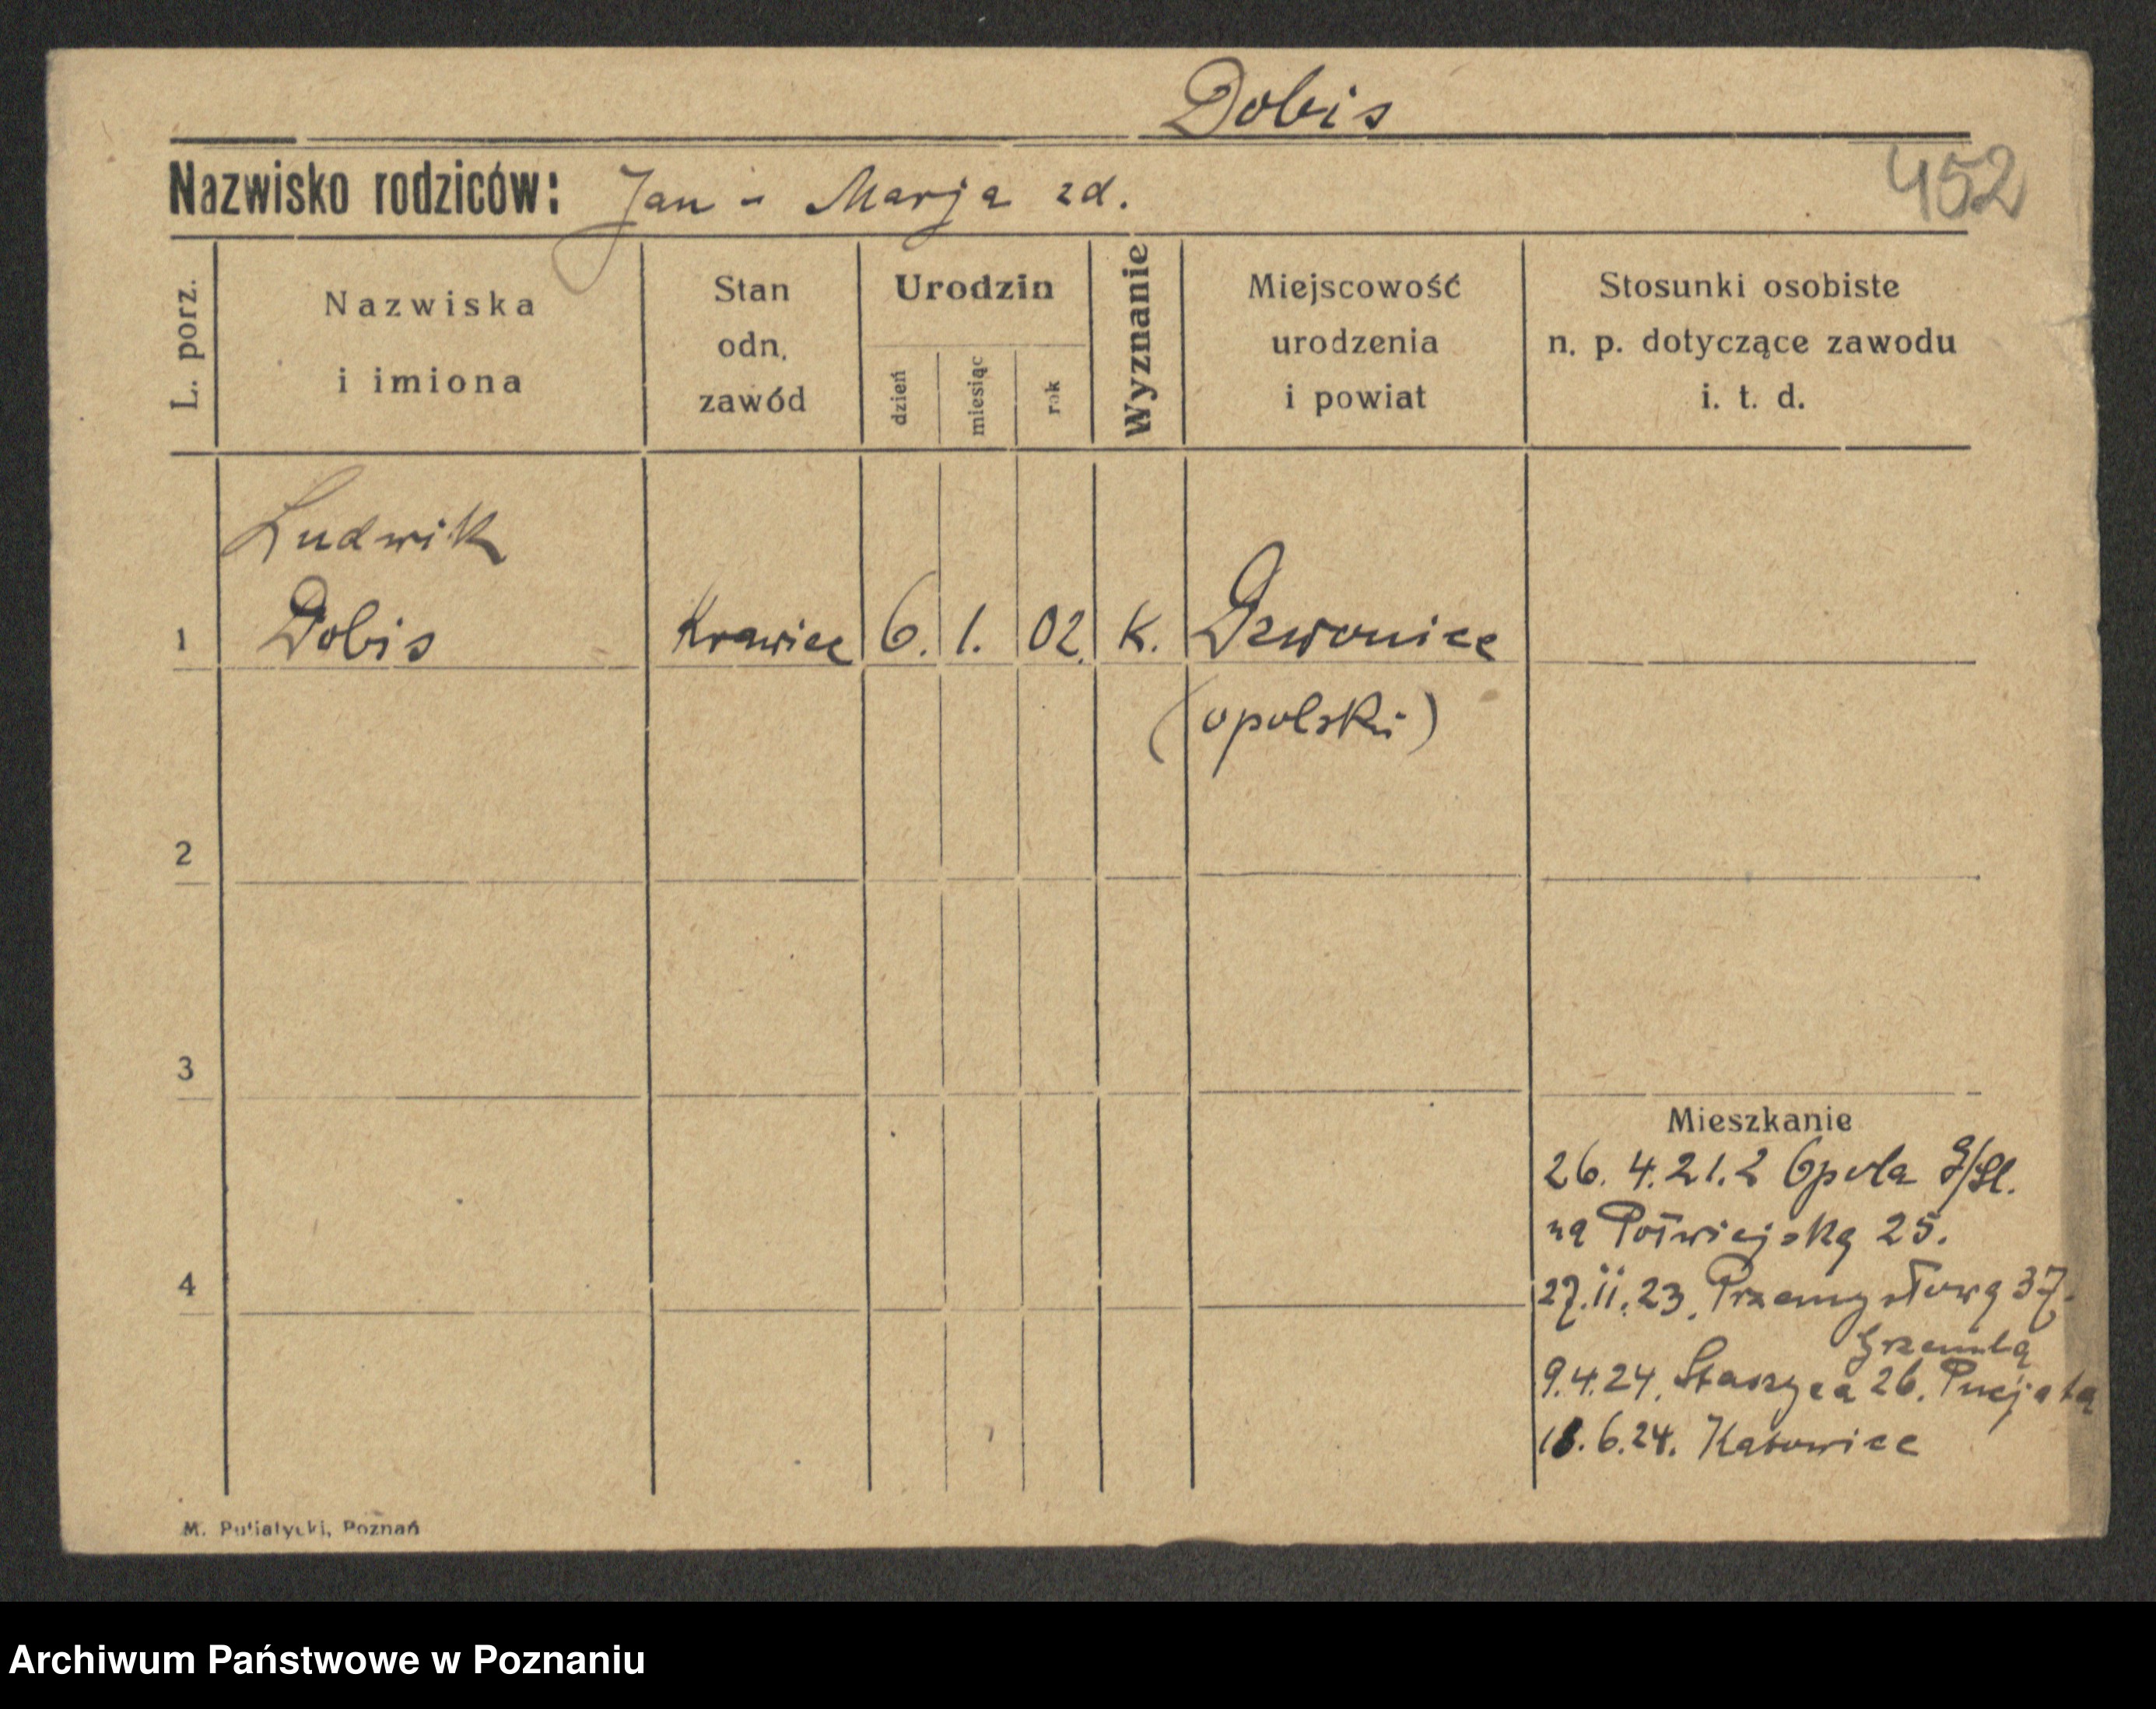 Dobis
Nazwisko rodziców: Jan - Marja zd.
452
L. porz.
Nazwiska
i imiona
Stan
odn.
zawód
Urodzin
dzień
miesiąc
rok
Wyznanie
Miejscowość
urodzenia
i powiat
Stosunki osobiste
n. p. dotyczące zawodu
i. t. d.
Ludwik
1 Dobis Krawiec 6. 1. 02. K. Dzwonice
(opolski)
2
3
Mieszkanie
26. 4. 21. z Opola G/Śl.
na Półwiejską 25.
4
27. ii. 23. Przemysłową 37.
9.4.24. Staszyca 26.
18. 6. 24. Katowice
M. Putiatycki, Poznań
Archiwum Państwowe w Poznaniu